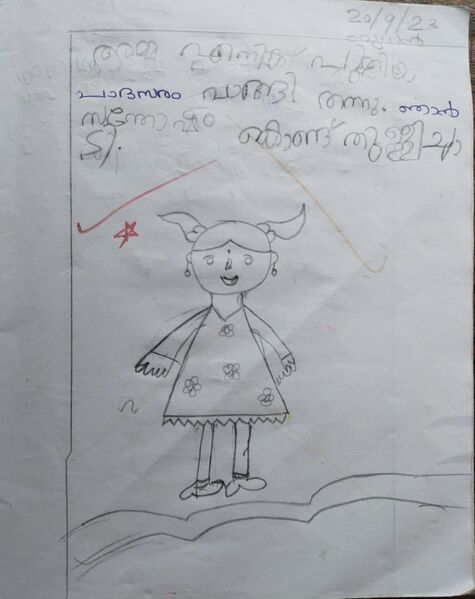 20/9/23
അമ്മ എനിക്ക് പുതിയ
പാദസരം വാങ്ങി തന്നു. ഞാൻ
സന്തോഷം കൊണ്ട് തുള്ളിച്ചാ
ടി.